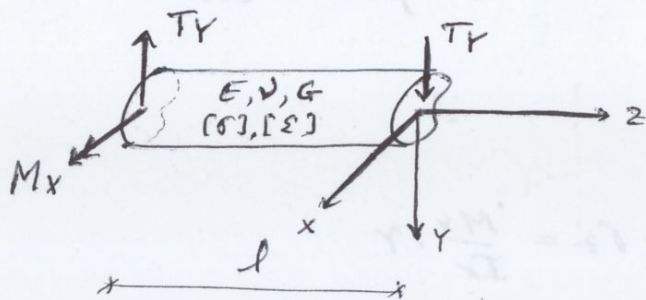 Ty
Ty
E, ν, G
[σ], [ε]
z
Mx
x
y
l